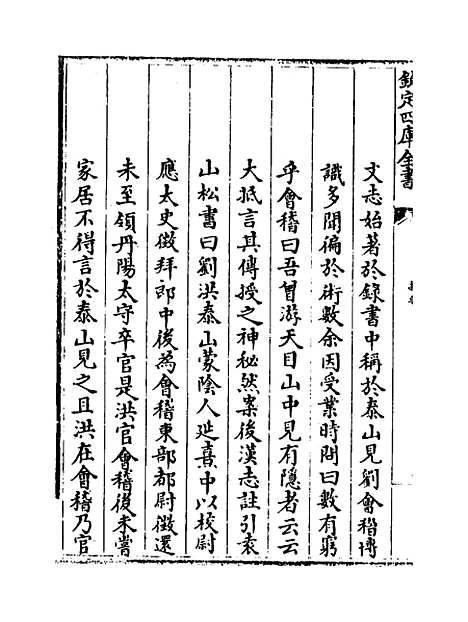 欽定四庫全書
文志始著於錄書中稱於泰山見劉會稽博
識多聞徧於術數余因受業時問曰數有窮
乎會稽曰吾曾游天目山中見有隱者云云
大抵言其傳授之神秘然案後漢志註引袁
山松書曰劉洪泰山蒙陰人延熹中以校尉
應太史徵拜郎中後為會稽東部都尉徵還
未至領丹陽太守卒官是洪官會稽後未嘗
家居不得言於泰山見之且洪在會稽乃官